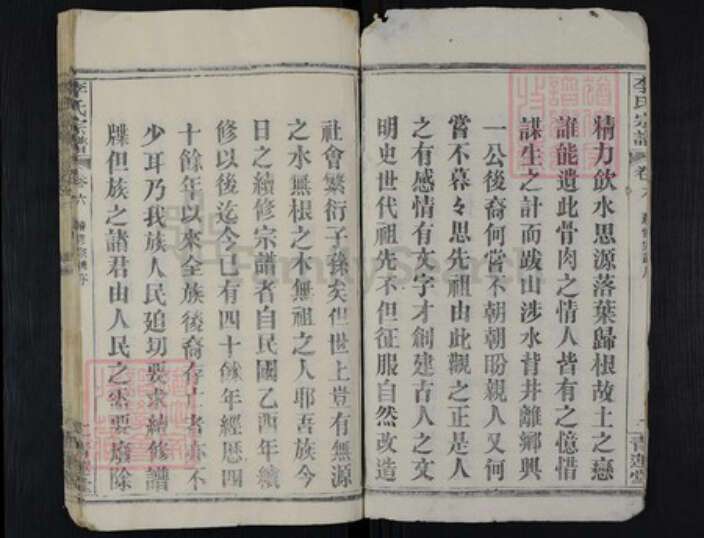 精力飲水思源落葉歸根故土之戀
誰能遺此骨肉之情人皆有之憶惜
謀生之計而跋山涉水背井離鄉興
一公後裔何嘗不朝朝盼親人又何
嘗不暮々思先祖由此觀之正是人
之有感情有文字才創建古人之文
明史世代祖先不但征服自然改造
李氏宗譜
卷六
青蓮堂
社會繁衍子孫矣但世上豈有無源
之水無根之木無祖之人耶吾族今
日之續修宗譜者自民國乙酉年續
修以後迄今已有四十餘年經歷四
十餘年以來全族後裔存亡者亦不
少耳乃我族人民迫切要求續修譜
牒但族之諸君由人民之需要廢除
李氏宗譜
卷六
FamilySearch